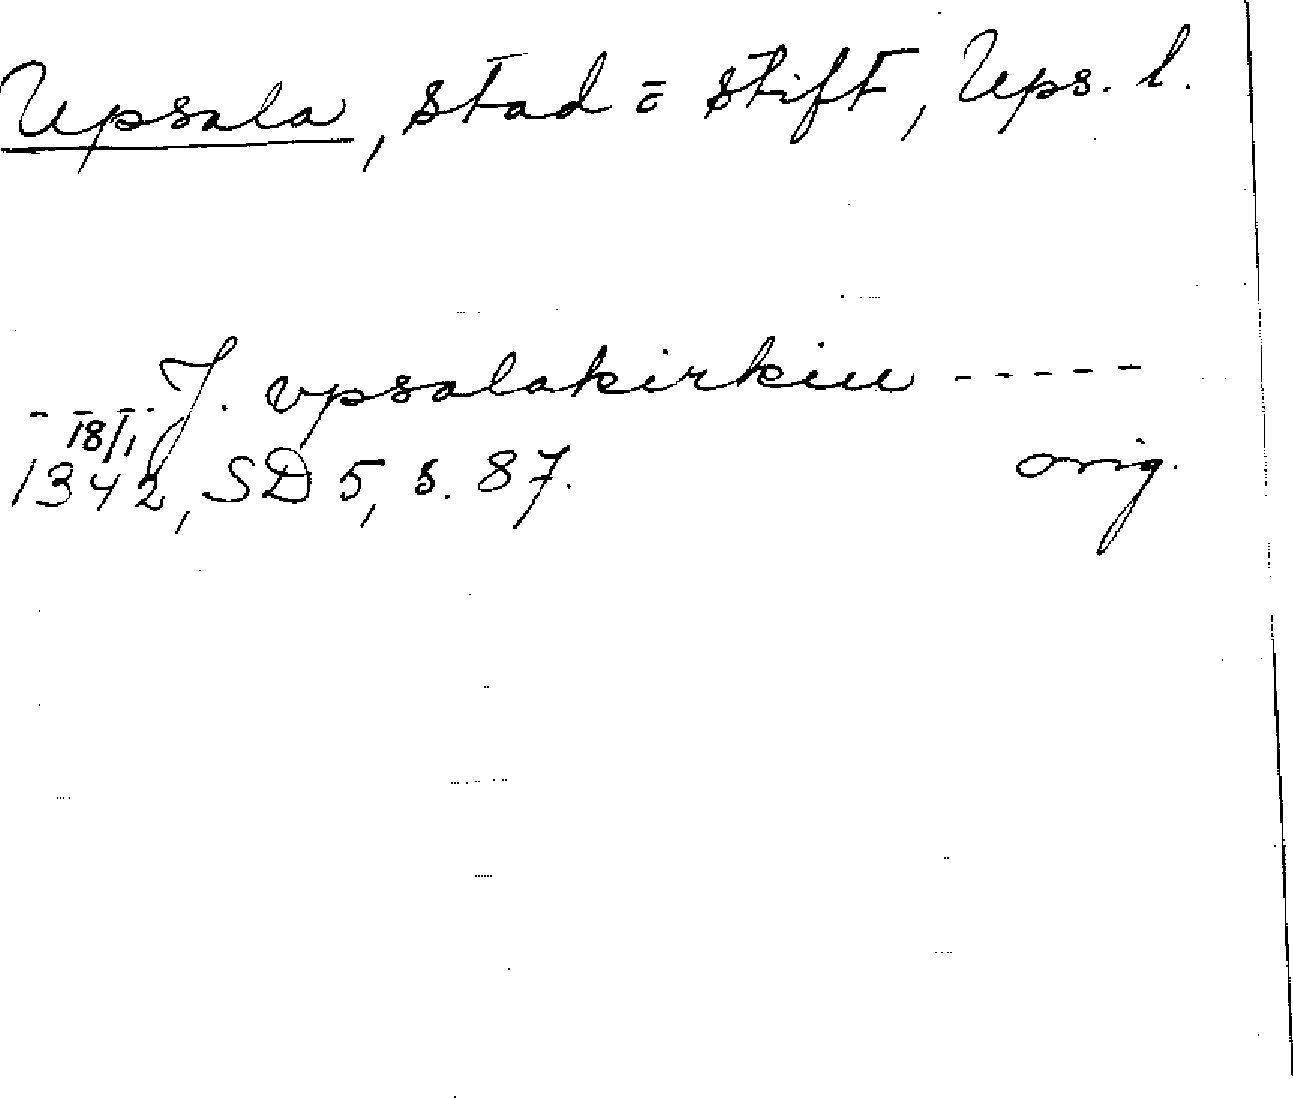 Upsala, stad o stift, Ups. l.
- - - - J. vpsalakirkiu - - - - -
18/1
1342, SD 5, s. 87. orig.